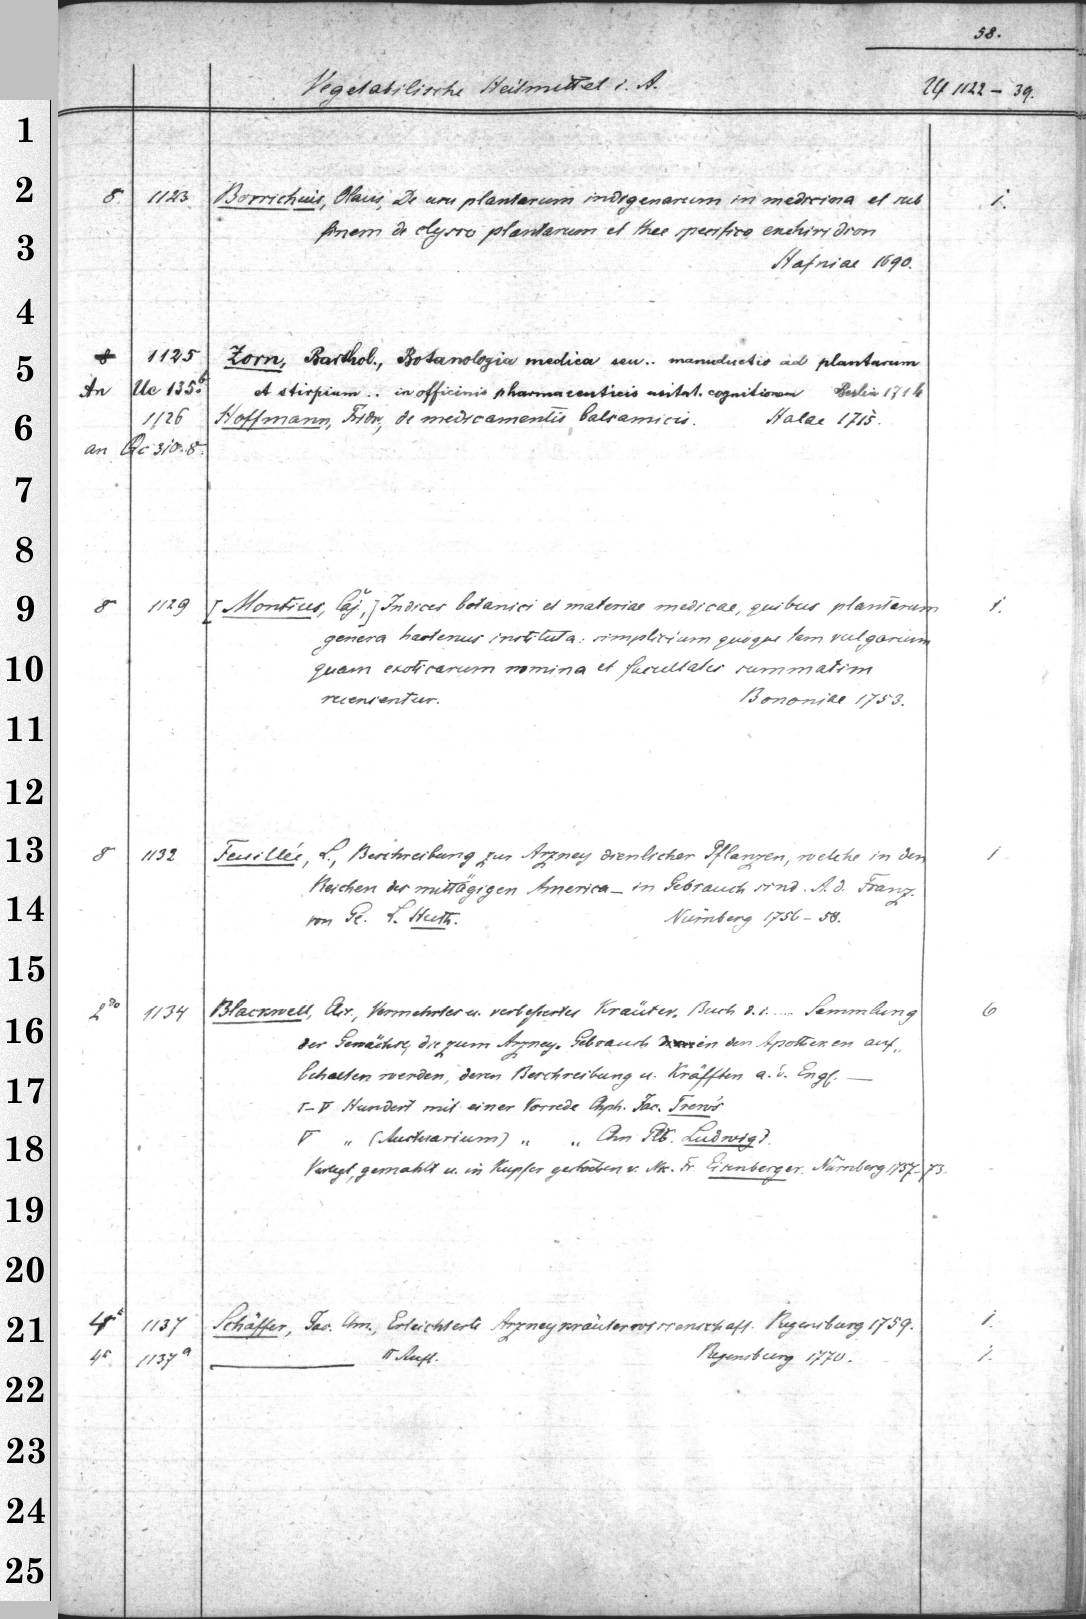 58.
Vegetabilische Heilmittel i. A. Uf 1122 – 39.
1
2
3
4
5
6
7
8
9
10
11
12
13
14
15
16
17
18
19
20
21
22
23
24
25
8. 1123 Borrichius, Olaus, De usu plantarum indigenarum in medicina et sub 1.
finem de clysso plantarum et thee specifico enchiridion
Hafniae 1690.
8 1125 Zorn, Barthol., Botanologia medica seu .. manuductio ad plantarum
An Ue 135.b et stirpium .. in officinis pharmaceuticis usitat. cognitionem Berlin 1714
1126 Hoffmann, Fridr., de medicamentis balsamicis. Halae 1715.
an 310. 8.
8 1129 [Montius, Caj.,] Indices botanici et materiae medicae, quibus plantarum 1.
genera hactenus instituta: simplicium quoque tam vulgarium
quam exoticarum nomina et facultates summatim
recensentur. Bononiae 1753.
8 1132 Feuillée, L., Beschreibung zur Arzney dienlicher Pflanzen, welche in den 1
Reichen des mittägigen America – in Gebrauch sind. A. d. Franz.
von G. L. Huth. Nürnberg 1756 – 58.
2do 1134 Blackwell, Vermehrtes u. verbessertes Kräuter-Buch d. i. .... Sammlung 6
der Gewächse, die zum Arzney-Gebrauch in den Apotheken auf-
behalten werden, deren Beschreibung u. Kräfften a. d. Engl. —
I–V Hundert mit einer Vorrede Chph. Jac. Trew's
V „ (Auctuarium) „ „ Chn Glb. Ludwig's.
Verlegt, gemahlt u. in Kupfer gestochen v. Nic. Fr. Eisenberger. Nürnberg 1757–73.
4° 1137 Schäffer, Jac. Chn., Erleichterte Arzneykräuterwissenschaft. Regensburg 1759. 1.
4° 1137a ———— II Aufl. Regensburg 1770. 1.